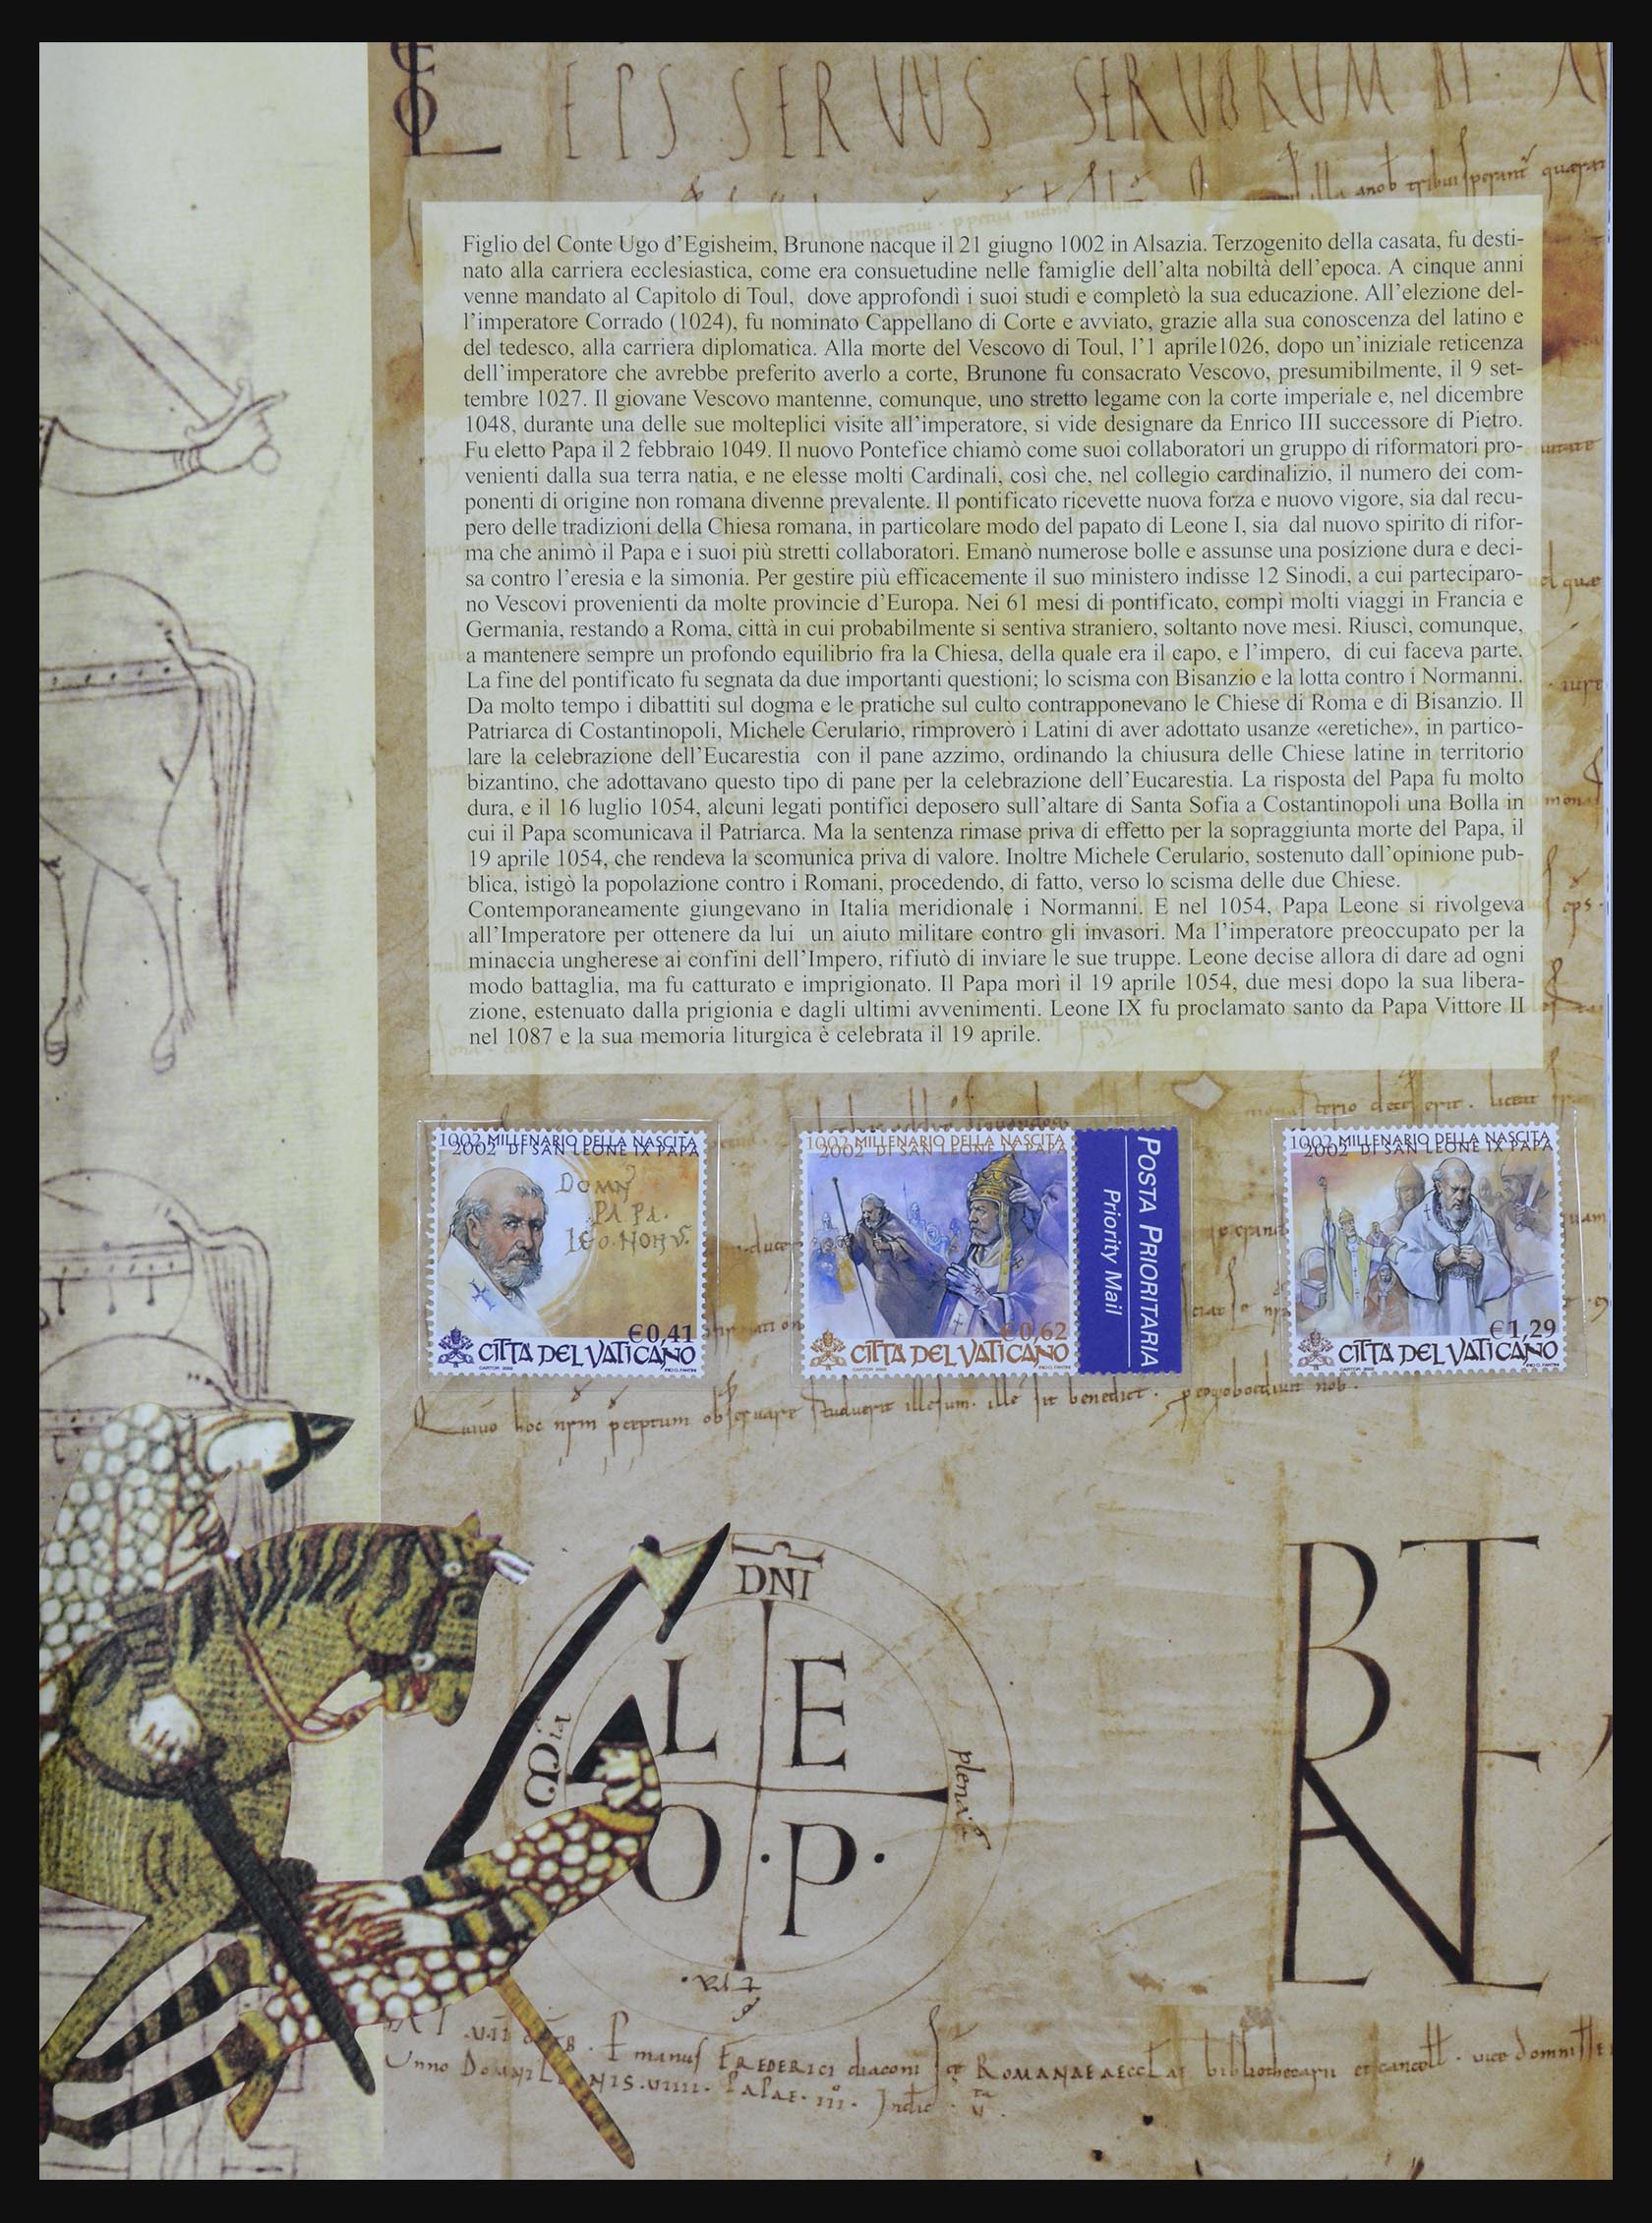 EPS SERVUS SERVORUM DI
Figlio del Conte Ugo d'Egisheim, Brunone nacque il 21 giugno 1002 in Alsazia. Terzogenito della casata, fu desti-
nato alla carriera ecclesiastica, come era consuetudine nelle famiglie dell'alta nobiltà dell'epoca. A cinque anni
venne mandato al Capitolo di Toul, dove approfondì i suoi studi e completò la sua educazione. All'elezione del-
l'imperatore Corrado (1024), fu nominato Cappellano di Corte e avviato, grazie alla sua conoscenza del latino e
del tedesco, alla carriera diplomatica. Alla morte del Vescovo di Toul, l'1 aprile1026, dopo un'iniziale reticenza
dell'imperatore che avrebbe preferito averlo a corte, Brunone fu consacrato Vescovo, presumibilmente, il 9 set-
tembre 1027. Il giovane Vescovo mantenne, comunque, uno stretto legame con la corte imperiale e, nel dicembre
1048, durante una delle sue molteplici visite all'imperatore, si vide designare da Enrico III successore di Pietro.
Fu eletto Papa il 2 febbraio 1049. Il nuovo Pontefice chiamò come suoi collaboratori un gruppo di riformatori pro-
venienti dalla sua terra natia, e ne elesse molti Cardinali, così che, nel collegio cardinalizio, il numero dei com-
ponenti di origine non romana divenne prevalente. Il pontificato ricevette nuova forza e nuovo vigore, sia dal recu-
pero delle tradizioni della Chiesa romana, in particolare modo del papato di Leone I, sia dal nuovo spirito di rifor-
ma che animò il Papa e i suoi più stretti collaboratori. Emanò numerose bolle e assunse una posizione dura e deci-
sa contro l'eresia e la simonia. Per gestire più efficacemente il suo ministero indisse 12 Sinodi, a cui parteciparo-
no Vescovi provenienti da molte provincie d'Europa. Nei 61 mesi di pontificato, compì molti viaggi in Francia e
Germania, restando a Roma, città in cui probabilmente si sentiva straniero, soltanto nove mesi. Riuscì, comunque,
a mantenere sempre un profondo equilibrio fra la Chiesa, della quale era il capo, e l'impero, di cui faceva parte.
La fine del pontificato fu segnata da due importanti questioni; lo scisma con Bisanzio e la lotta contro i Normanni.
Da molto tempo i dibattiti sul dogma e le pratiche sul culto contrapponevano le Chiese di Roma e di Bisanzio. Il
Patriarca di Costantinopoli, Michele Cerulario, rimproverò i Latini di aver adottato usanze «eretiche», in partico-
lare la celebrazione dell'Eucarestia con il pane azzimo, ordinando la chiusura delle Chiese latine in territorio
bizantino, che adottavano questo tipo di pane per la celebrazione dell'Eucarestia. La risposta del Papa fu molto
dura, e il 16 luglio 1054, alcuni legati pontifici deposero sull'altare di Santa Sofia a Costantinopoli una Bolla in
cui il Papa scomunicava il Patriarca. Ma la sentenza rimase priva di effetto per la sopraggiunta morte del Papa, il
19 aprile 1054, che rendeva la scomunica priva di valore. Inoltre Michele Cerulario, sostenuto dall'opinione pub-
blica, istigò la popolazione contro i Romani, procedendo, di fatto, verso lo scisma delle due Chiese.
Contemporaneamente giungevano in Italia meridionale i Normanni. E nel 1054, Papa Leone si rivolgeva
all'Imperatore per ottenere da lui un aiuto militare contro gli invasori. Ma l'imperatore preoccupato per la
minaccia ungherese ai confini dell'Impero, rifiutò di inviare le sue truppe. Leone decise allora di dare ad ogni
modo battaglia, ma fu catturato e imprigionato. Il Papa morì il 19 aprile 1054, due mesi dopo la sua libera-
zione, estenuato dalla prigionia e dagli ultimi avvenimenti. Leone IX fu proclamato santo da Papa Vittore II
nel 1087 e la sua memoria liturgica è celebrata il 19 aprile.
1002 MILLENARIO DELLA NASCITA
2002 DI SAN LEONE IX PAPA
DOMN
PAPA
LEO. NONUS.
€0,41
CITTÀ DEL VATICANO
1002 MILLENARIO DELLA NASCITA
2002 DI SAN LEONE IX PAPA
€0,62
CITTÀ DEL VATICANO
POSTA PRIORITARIA
Priority Mail
1002 MILLENARIO DELLA NASCITA
2002 DI SAN LEONE IX PAPA
€1,29
CITTÀ DEL VATICANO
DNI
L E
O ·P·
manus FREDERICI diaconi ROMANAE AECCLAE bibliothecarii et cancell
PAPAE